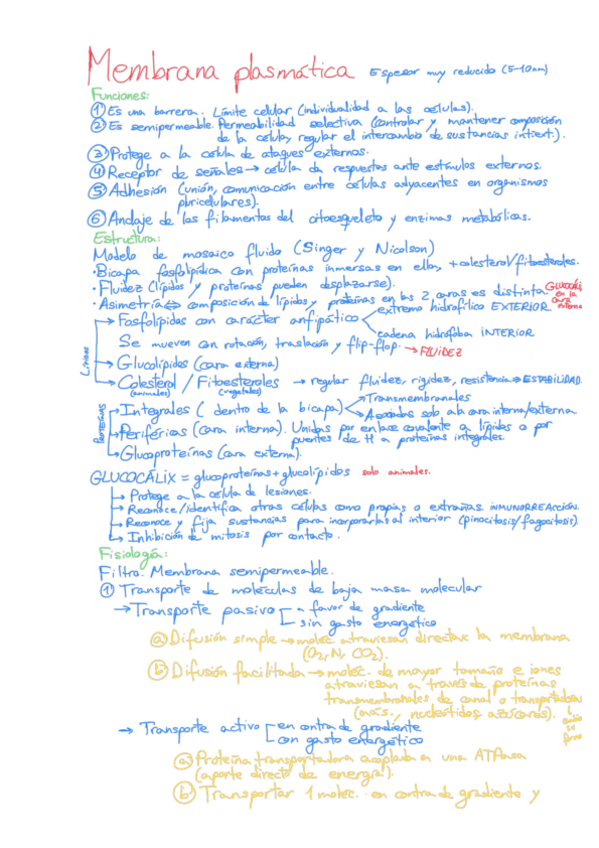 Membrana plasmática Espesor muy reducido (5-10nm)
Funciones:
① Es una barrera. Límite celular (individualidad a las células).
② Es semipermeable. Permeabilidad selectiva (controlar y mantener composición
de la celula, regular el intercambio de sustancias int/ext.).
③ Protege a la célula de ataques externos.
④ Receptor de señales → célula da respuestas ante estímulos externos.
⑤ Adhesión (unión, comunicación entre células adyacentes en organismos
pluricelulares).
⑥ Anclaje de los filamentos del citoesqueleto y enzimas metabólicas.
Estructura:
Modelo de mosaico fluido (Singer y Nicolson)
· Bicapa fosfolipídica con proteínas inmersas en ella, + colesterol/fitoesteroles.
· Fluidez (lípidos y proteínas pueden desplazarse).
· Asimetría ⇔ composición de lípidos y proteínas en las 2 caras es distinta GLUCOCÁLI en la cara externa
Lípidos
→ Fosfolípidos con carácter anfipático
extremo hidrofílico EXTERIOR
cadena hidrófoba INTERIOR
Se mueven con rotación, traslación y flip-flop. → FLUIDEZ
→ Glucolípidos (cara externa)
→ Colesterol / Fitoesteroles → regular fluidez, rigidez, resistencia ⇒ ESTABILIDAD.
(animales) (vegetales)
PROTEÍNAS
→ Integrales (dentro de la bicapa)
Transmembranales
Asociadas solo a la cara interna/externa
→ Periféricas (cara interna). Unidas por enlace covalente a lípidos o por
puentes de H a proteínas integrales.
→ Glucoproteínas (cara externa).
GLUCOCÁLIX = glucoproteínas + glucolípidos solo animales.
→ Protege a la célula de lesiones.
→ Reconoce/identifica otras células como propias o extrañas INMUNORREACCIÓN.
→ Reconoce y fija sustancias para incorporarlas al interior (pinocitosis/fagocitosis)
→ Inhibición de mitosis por contacto.
Fisiología:
Filtro. Membrana semipermeable.
① Transporte de moléculas de baja masa molecular
→ Transporte pasivo
a favor de gradiente
sin gasto energético
ⓐ Difusión simple → moléc. atraviesan directax la membrana
(O₂, N, CO₂).
ⓑ Difusión facilitada → moléc. de mayor tamaño e iones
atraviesan a través de proteínas
transmembranales de canal o transportadoras
nucleótidos, azúcares).
→ Transporte activo
en contra de gradiente
con gasto energético
ⓐ Proteína transportadora acoplada a una ATPasa
(aporte directo de energía).
ⓑ Transportar 1 moléc. en contra de gradiente y